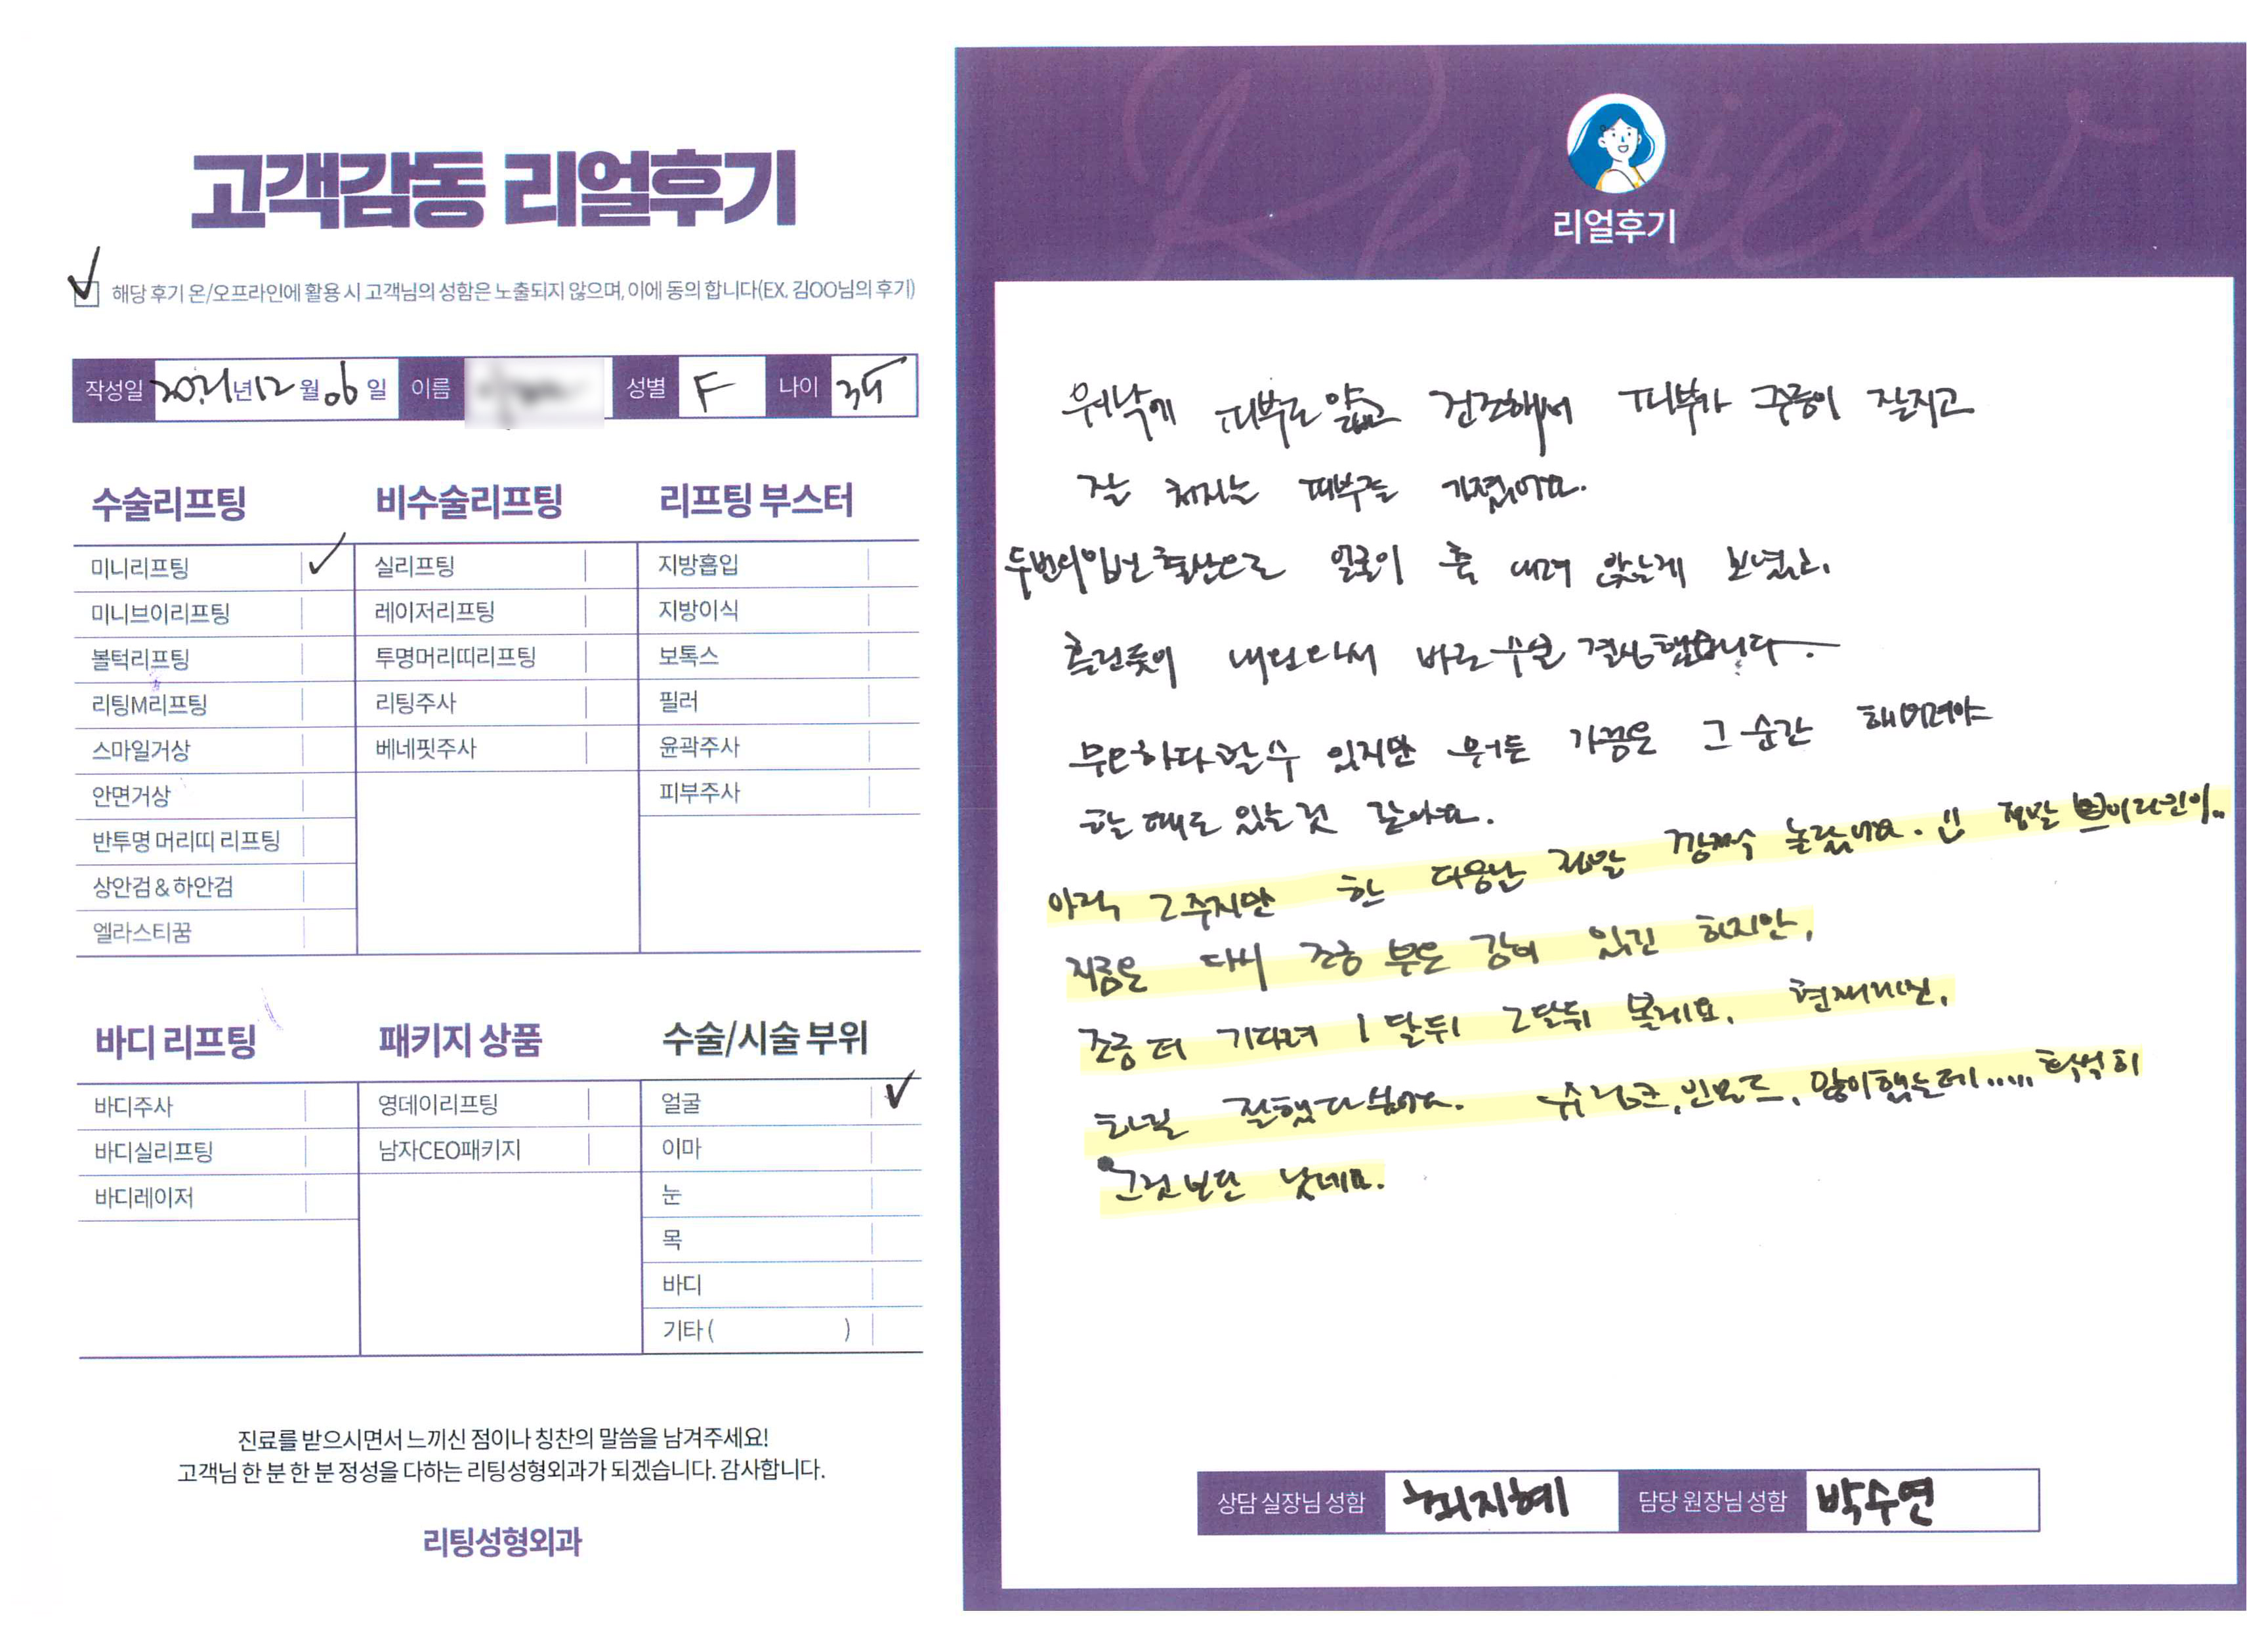 고객감동 리얼후기
해당 후기 온/오프라인에 활용 시 고객님의 성함은 노출되지 않으며, 이에 동의 합니다(EX. 김OO님의 후기)
작성일 2021년 12월 06일 이름 성별 F 나이 35
수술리프팅
미니리프팅
미니브이리프팅
볼턱리프팅
리팅M리프팅
스마일거상
안면거상
반투명 머리띠 리프팅
상안검&하안검
엘라스티꿈
비수술리프팅
실리프팅
레이저리프팅
투명머리띠리프팅
리팅주사
베네핏주사
리프팅 부스터
지방흡입
지방이식
보톡스
필러
윤곽주사
피부주사
바디 리프팅
바디주사
바디실리프팅
바디레이저
패키지 상품
영데이리프팅
남자CEO패키지
수술/시술 부위
얼굴
이마
눈
목
바디
기타( )
진료를 받으시면서 느끼신 점이나 칭찬의 말씀을 남겨주세요!
고객님 한 분 한 분 정성을 다하는 리팅성형외과가 되겠습니다. 감사합니다.
리팅성형외과
Review
리얼후기
워낙에 피부도 얇고 건조해서 피부가 주름이 잘지고
잘 쳐지는 피부를 가졌어요.
두번의 출산으로 얼굴이 훅 내려 앉는게 보였고,
홀린듯이 내원해서 바로 수술 결심했습니다.
무모하다 할 수 있지만 뭐든 가끔은 그 순간 해버려야
할 때도 있는 것 같아요.
아직 2주지만 한 다음날 정말 깜짝 놀랐어요. !! 정말 브이라인이..
지금은 다시 조금 부은 감이 있긴 하지만,
조금 더 기다려 1달뒤 2달뒤 볼게요. 현재까진,
하길 잘했다 싶어요. 슈링크, 인모드, 많이했는데..... 확실히
그것보단 낫네요.
상담 실장님 성함 최지혜 담당 원장님 성함 박수연